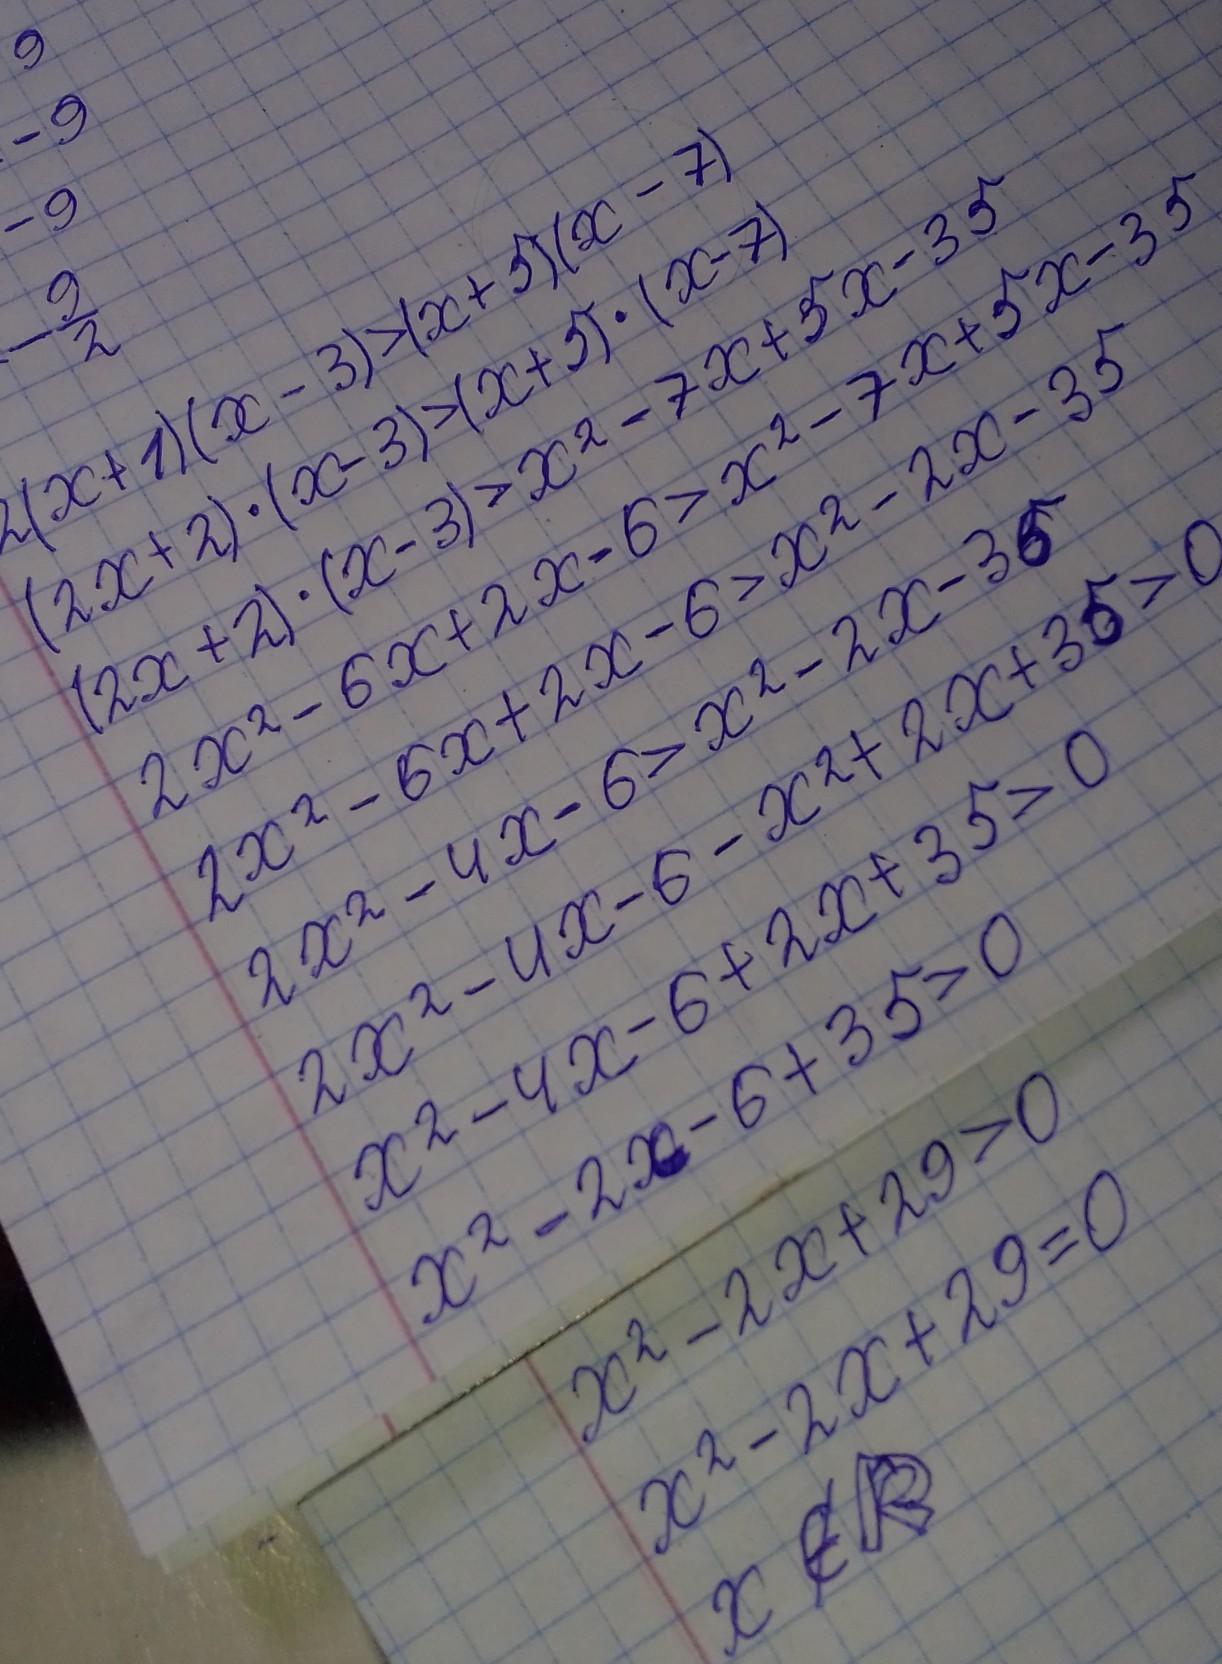 9
-9
-9
-9/2
2(x+1)(x-3)>(x+5)(x-7)
(2x+2)·(x-3)>(x+5)·(x-7)
(2x+2)·(x-3)>x²-7x+5x-35
2x²-6x+2x-6>x²-7x+5x-35
2x²-6x+2x-6>x²-2x-35
2x²-4x-6>x²-2x-35
2x²-4x-6-x²+2x+35>0
x²-4x-6+2x+35>0
x²-2x-6+35>0
x²-2x+29>0
x²-2x+29=0
x∉ℝ